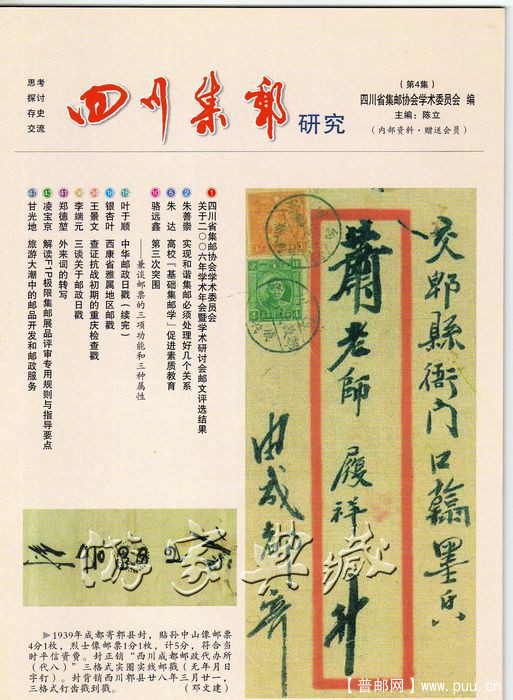 思考
探讨
存史
交流
四川集邮
研究
(第4集)
四川省集邮协会学术委员会 编
主编:陈立
(内部资料·赠送会员)
① 四川省集邮协会学术委员会
关于二〇〇六年学术年会暨学术研讨会邮文评选结果
② 朱善崇 实现和谐集邮必须处理好几个关系
⑤ 朱 达 高校「基础集邮学」促进素质教育
⑩ 骆远鑫 第三次突围
——兼谈邮票的三项功能和三种属性
⑯ 叶于顺 中华邮政日戳(续完)
⑱ 银杏叶 西康省雅属地区邮戳
王景文 查证抗战初期的重庆检查戳
李端元 三谈关于邮政日戳
㊶ 郑德堃 外来词的转写
㊸ 凌宝京 解读FIP极限集邮展品评审专用规则与指导要点
㊼ 甘光地 旅游大潮中的邮品开发和邮政服务
交郫縣衙门口
萧老師 履祥 升
由成都寄
游家典藏
▶1939年成都寄郫县封,贴孙中山像邮票
4分1枚,烈士像邮票1分1枚,计5分,符合当
时平信资费。封正销“西川成都邮政代办所
(代八)”三格式实圈实线邮戳(无年月日
字钉)。封背销西川郫县廿八年三月廿一,
三格式钉齿戳到戳。 (邓文建)
【普邮网】www.puu.cn